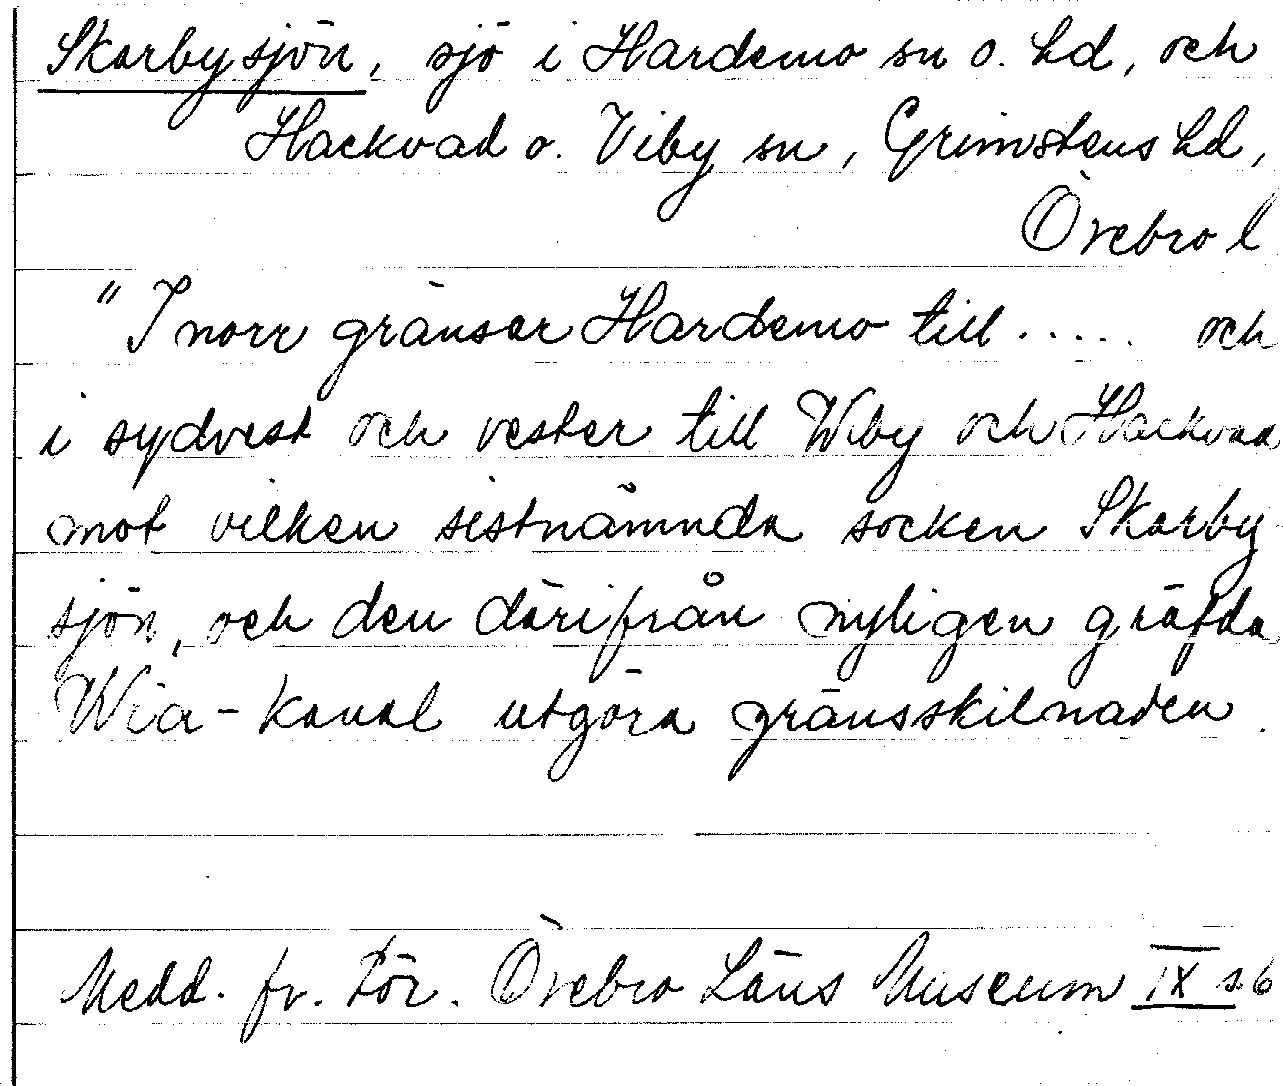 Skarbysjön, sjö i Hardemo sn o. hd, och
Hackvad o. Viby sn, Grimstens hd,
Örebro l
"I norr gränsar Hardemo till ..... och
i sydvest och vester till Wiby och Hackvad
mot vilken sistnämnda socken Skarby-
sjön, och den därifrån nyligen gräfda
Wia-kanal utgöra gränsskilnaden.
Medd. fr. För. Örebro Läns Museum IX s. 6